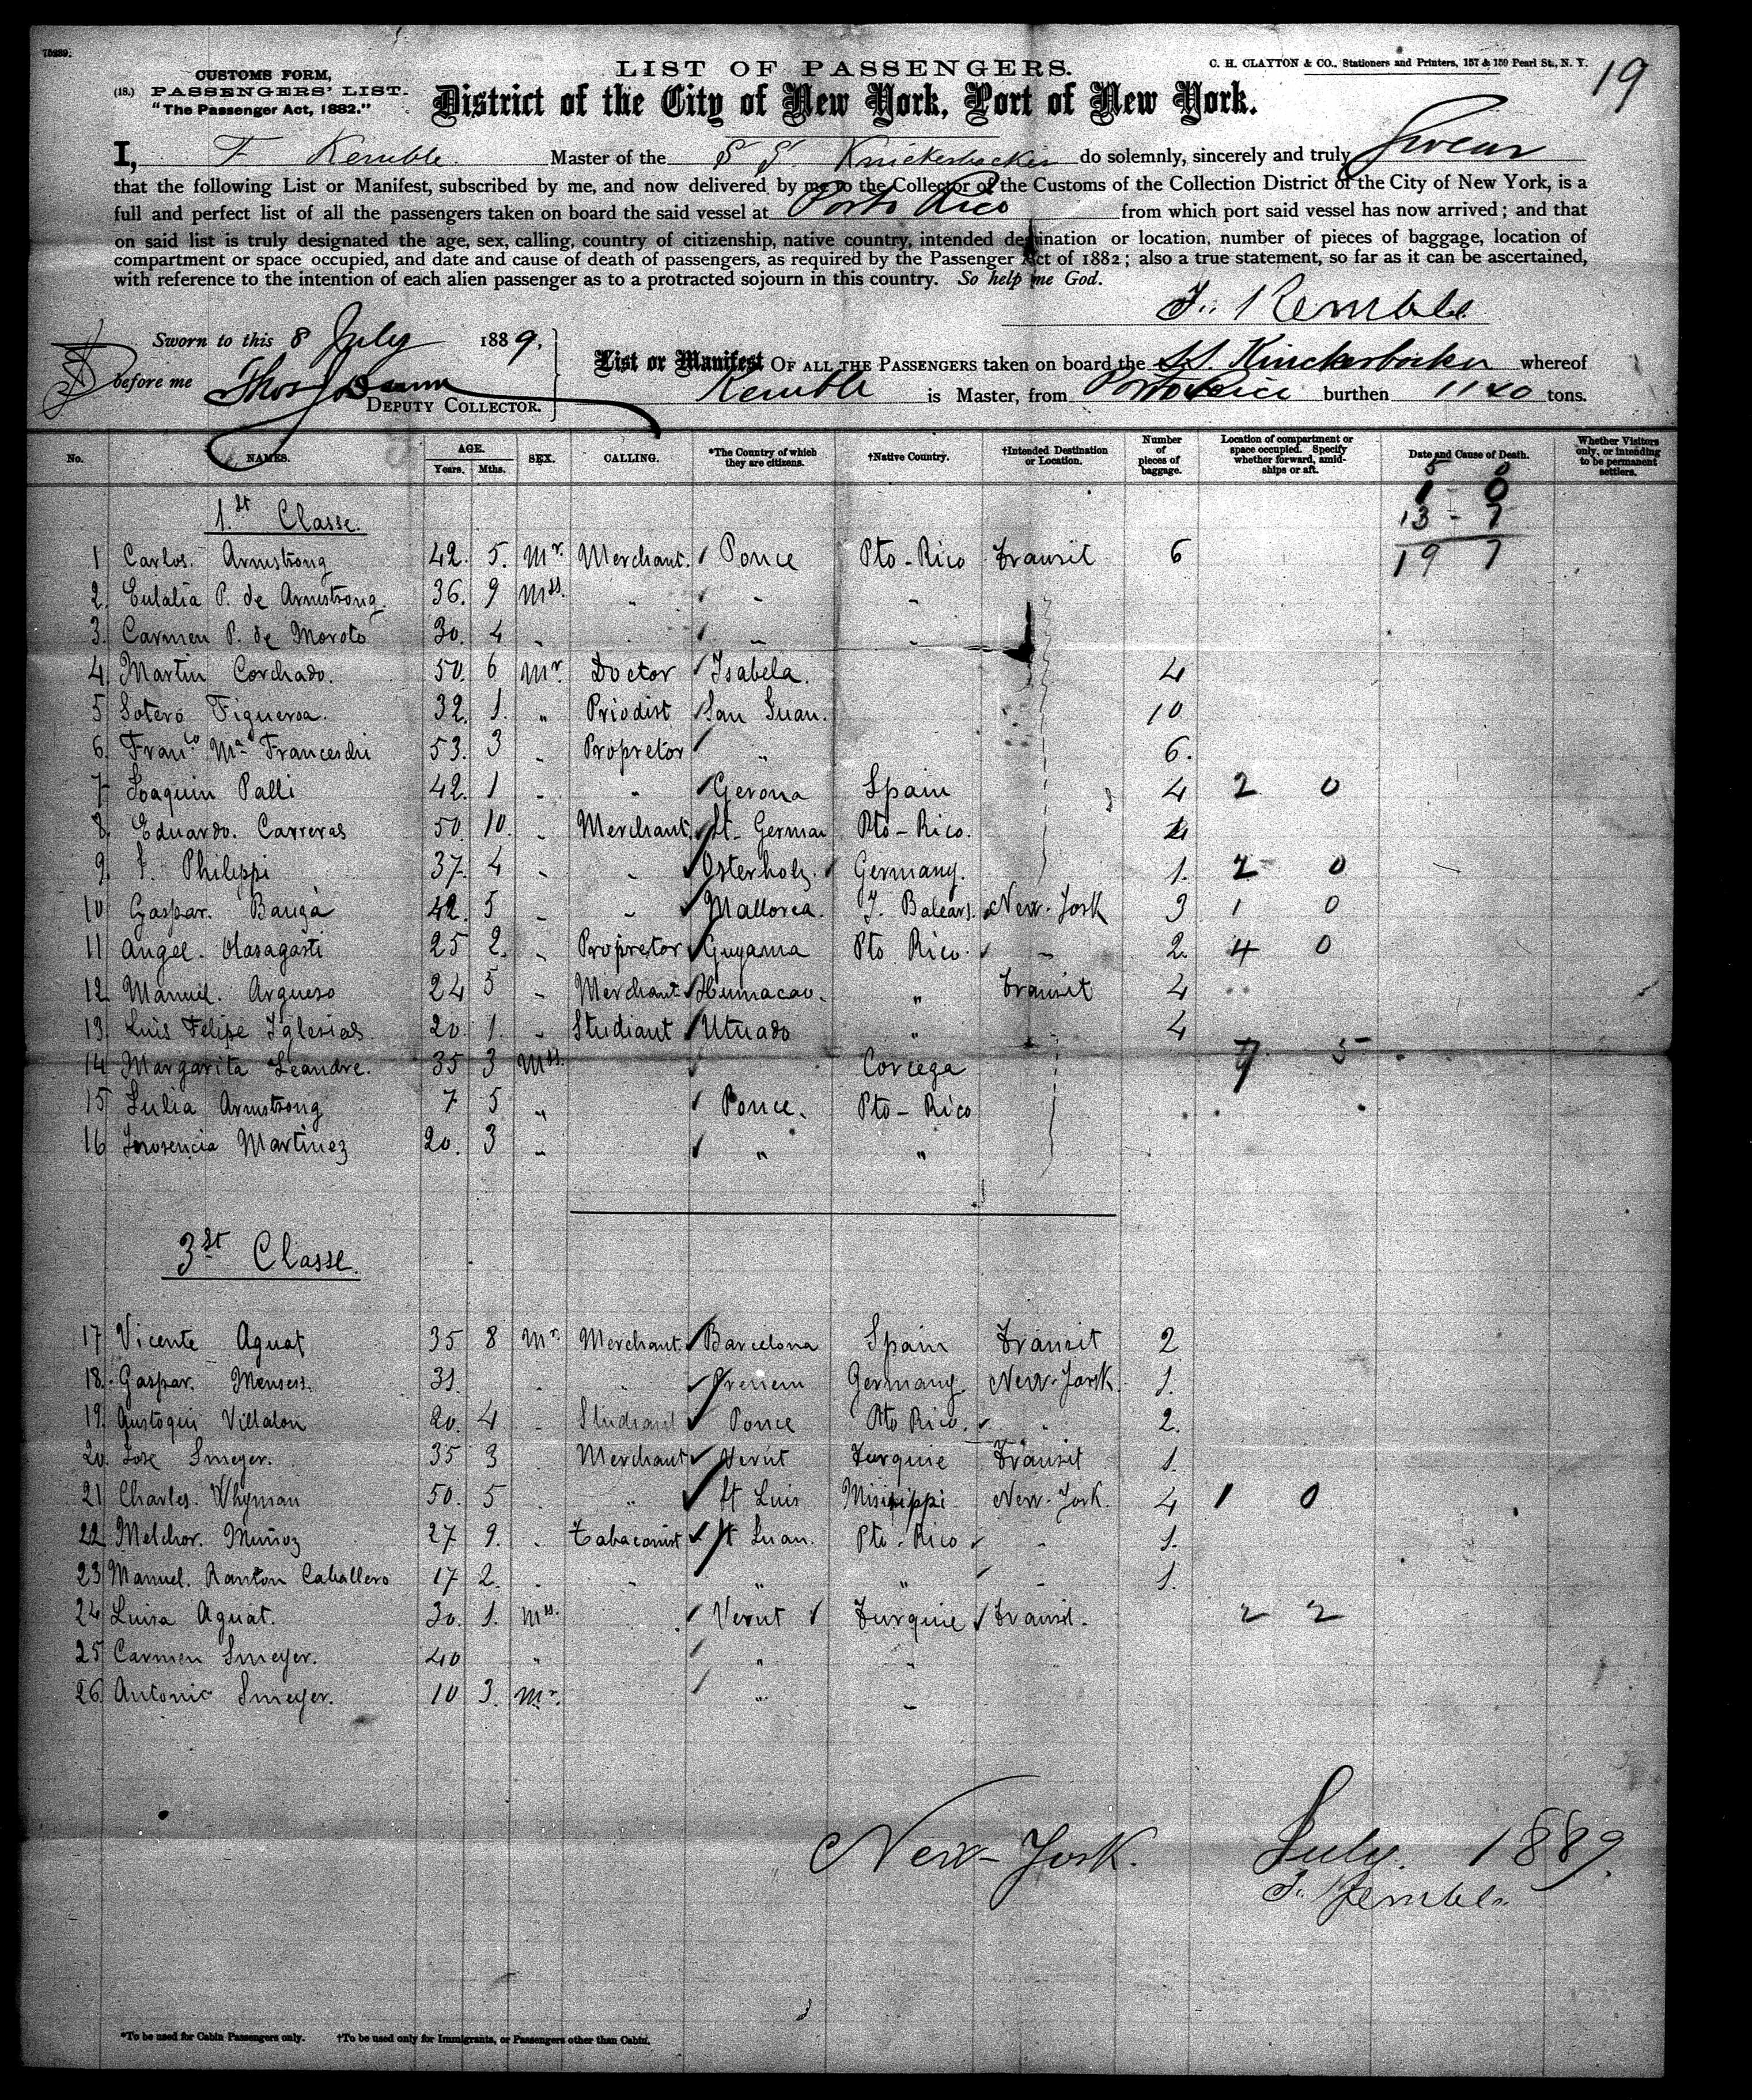 70289.
CUSTOMS FORM,
(18.) PASSENGERS' LIST.
"The Passenger Act, 1882."
LIST OF PASSENGERS.
C. H. CLAYTON & CO., Stationers and Printers, 157 & 159 Pearl St., N. Y.
19
District of the City of New York, Port of New York.
I, F Kemble Master of the S S Knickerbocker do solemnly, sincerely and truly swear
that the following List or Manifest, subscribed by me, and now delivered by me to the Collector of the Customs of the Collection District of the City of New York, is a
full and perfect list of all the passengers taken on board the said vessel at Porto Rico from which port said vessel has now arrived; and that
on said list is truly designated the age, sex, calling, country of citizenship, native country, intended destination or location, number of pieces of baggage, location of
compartment or space occupied, and date and cause of death of passengers, as required by the Passenger Act of 1882; also a true statement, so far as it can be ascertained,
with reference to the intention of each alien passenger as to a protracted sojourn in this country. So help me God.
F. Kemble
Sworn to this 8 July 1889,
before me Thos
DEPUTY COLLECTOR.
List or Manifest OF ALL THE PASSENGERS taken on board the SS. Knickerbocker whereof
Kemble is Master, from Porto Rico burthen 1140 tons.
No. NAMES. AGE. Years. Mths. SEX. CALLING. *The Country of which they are citizens. †Native Country. †Intended Destination or Location. Number of pieces of baggage. Location of compartment or space occupied. Specify whether forward, amidships or aft. Date and Cause of Death. Whether Visitors only, or intending to be permanent settlers.
5 0
1 0
1.st Classe.
13 - 7
19 7
1 Carlos. Armstrong 42. 5. Mr. Merchant. Ponce Pto-Rico Transit 6
2 Eulalia P. de Armstrong. 36. 9 Mss. " " "
3. Carmen P. de Moroto 30. 4 " " "
4 Martin Corchado. 50. 6 Mr. Doctor Isabela. 4
5 Sotero Figueroa. 32. 1. " Priodist San Juan. 10
6 Franco Ma Franceschi 53. 3 " Propretor " 6.
7 Joaquin Palli 42. 1 " " Gerona Spain 4 2 0
8 Eduardo. Carreras 50. 10. " Merchant. St. German Pto-Rico. 4
9 J. Philippi 37. 4 " " Osterholz. Germany. 1. 2 0
10 Gaspar. Bauza 42. 5 " " Mallorca. J. Balears. New-York 3 1 0
11 Angel. Olasagasti 25 2. " Propretor Guyama Pto Rico. " 2. 4 0
12 Manuel. Argueso 24 5 " Merchant Humacao. " Transit 4
13 Luis Felipe Iglesias 20. 1. " Studiant Utuado " 4
14 Margarita Leandre. 35 3 Mss. Corcega 9 5
15 Julia Armstrong 7 5 " Ponce. Pto-Rico
16 Inosencia Martinez 20. 3 " " "
3st Classe.
17 Vicente Aguat 35 8 Mr. Merchant. Barcelona Spain Transit 2
18. Gaspar. 31. " " Germany. New-York. 1.
19 Villalon 20. 4 " Studiant Ponce Pto Rico. " 2.
20. Jose Smeyer. 35 3 Merchant Verut Turquie Transit 1.
21 Charles. Whyman 50. 5 " " St Luis Misisippi New-York. 4 1 0
22 Melchor. Muñoz 27 9. " Tabaconist St Juan. Pto-Rico " 1.
23 Manuel. Ranton Caballero 17 2. " " " " " 1.
24 Luisa Aguat. 30. 1. Mss. Verut Turquie Transit. 2 2
25 Carmen Smeyer. 40 " " "
26 Antonio Smeyer. 10 3. Mr. " "
New-York. July. 1889.
F. Kemble
*To be used for Cabin Passengers only. †To be used only for Immigrants, or Passengers other than Cabin.